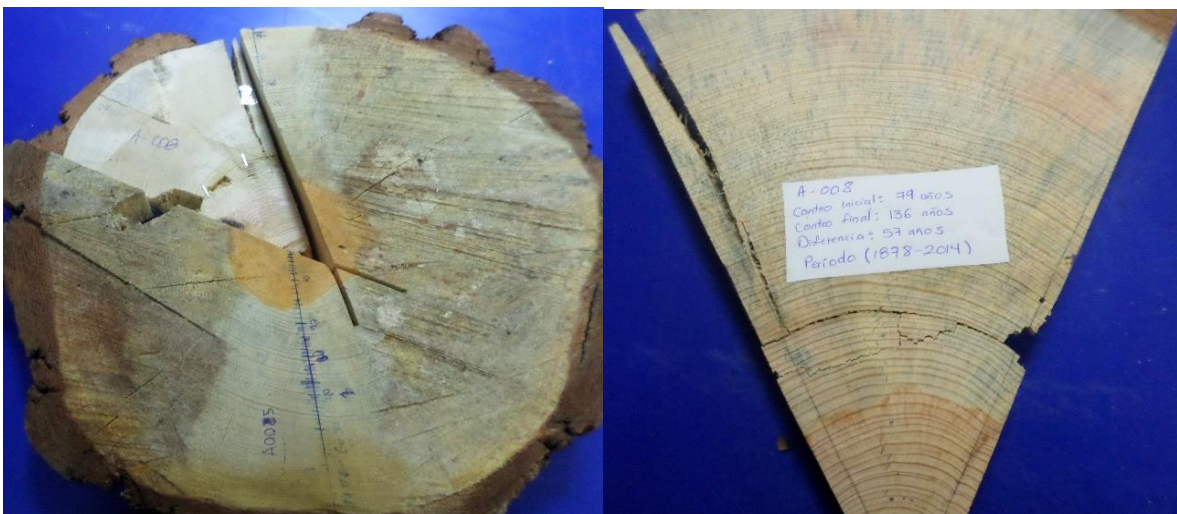 A-008
A008S
A-008
Conteo inicial: 79 años
Conteo final: 136 años
Diferencia: 57 años
Periodo (1878-2014)